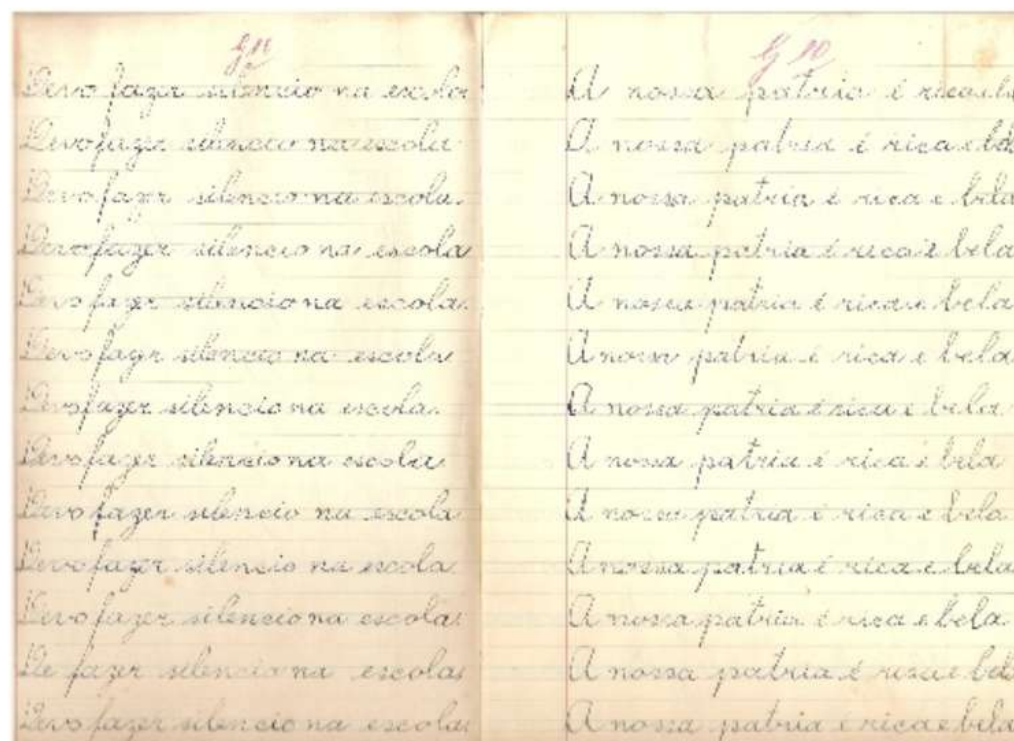 G 11
Devo fazer silencio na escola
Devo fazer silencio na escola
Devo fazer silencio na escola.
Devo fazer silencio na escola
Devo fazer silencio na escola.
Devo fazer silencio na escola
Devo fazer silencio na escola.
Devo fazer silencio na escola
Devo fazer silencio na escola
Devo fazer silencio na escola.
Devo fazer silencio na escola.
De fazer silencio na escola.
Devo fazer silencio na escola.
G 10
A nossa patria é rica e bela
A nossa patria é rica e bela
A nossa patria é rica e bela
A nossa patria é rica e bela
A nossa patria é rica e bela
A nossa patria é rica e bela
A nossa patria é rica e bela
A nossa patria é rica e bela
A nossa patria é rica e bela
A nossa patria é rica e bela
A nossa patria é rica e bela
A nossa patria é rica e bela
A nossa patria é rica e bela